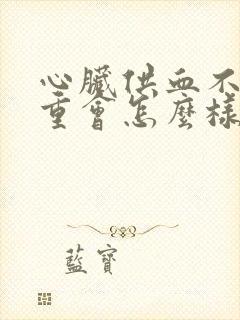 心臟供血不
重會怎麼樣
藍寶